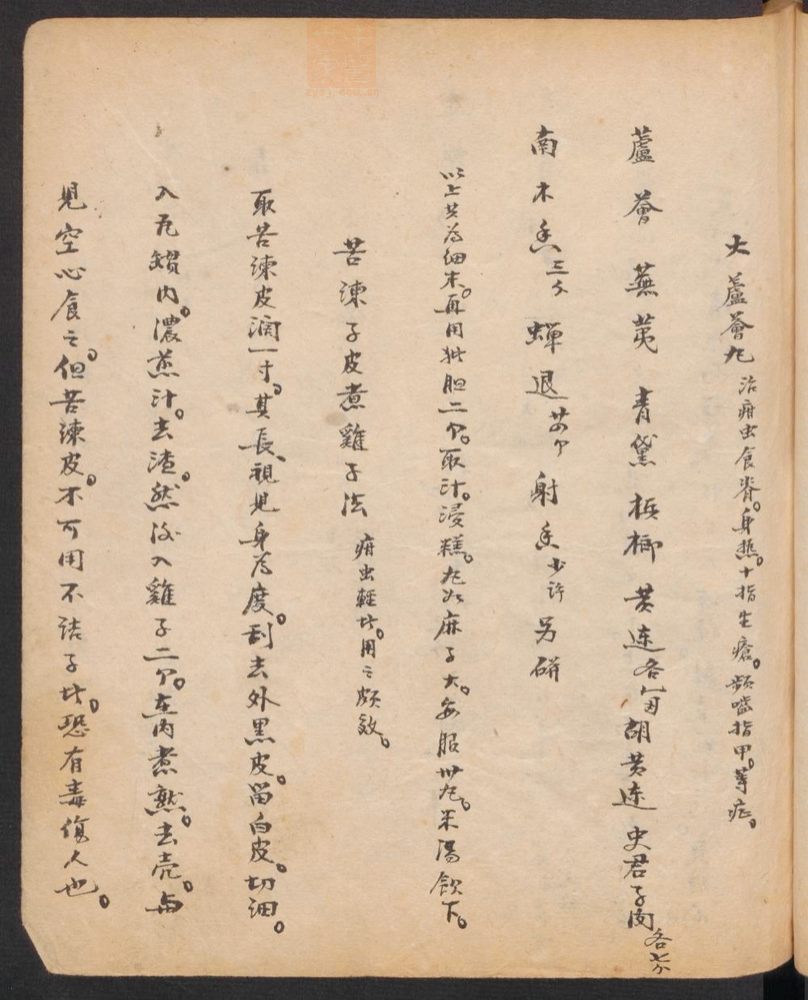 大蘆薈丸 治疳虫食脊。身熱。十指生瘡。頻嚙指甲。等症。
蘆薈 蕪荑 青黛 梹榔 黄連各 胡黄連 史君子肉各七分
南木香三分 蟬退廿个 射香少許另研
以上共為細末。再用猪胆二个。取汁。浸糕。丸如麻子大。每服卅丸。米湯飲下。
苦練子皮煮雞子法 疳虫輕者。用之頗效。
取苦練皮濶一寸。其長、視児身為度。刮去外黑皮。留白皮。切細。
入瓦罐内。濃煎汁。去渣。然後入雞子二个。在内煮熟。去壳。與
児空心食之。但苦練皮。不可用不結子者。恐有毒傷人也。